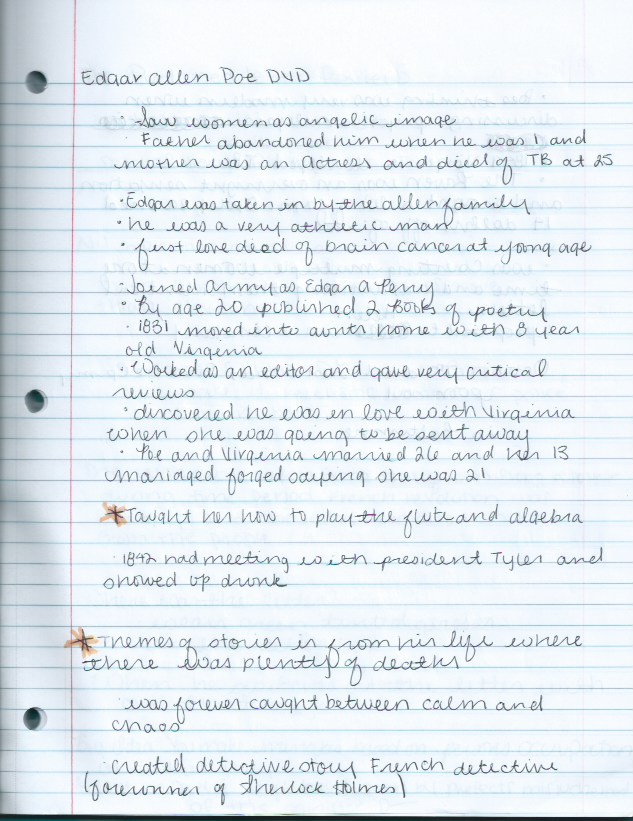 Edgar allen Poe DVD
· Saw women as angelic image
· Father abandoned him when he was 1 and
mother was an Actress and died of TB at 25
· Edgar was taken in by the allen family
· he was a very athletic man
· first love died of brain cancer at young age
· Joined Army as Edgar A Perry
· By age 20 published 2 Books of poetry
· 1831 moved into aunts home with 8 year
old Virginia
· Worked as an editor and gave very critical
reviews
· discovered he was in love with Virginia
when she was going to be sent away
· Poe and Virginia married 26 and her 13
mariaged forged saying she was 21
* Taught her how to play the flute and algebra
· 1842 had meeting with president Tyler and
showed up drunk
* Themes of stories is from his life where
there was plenty of deaths
· was forever caught between calm and
chaos
· created detective story French detective
(forerunner of Sherlock Holmes)